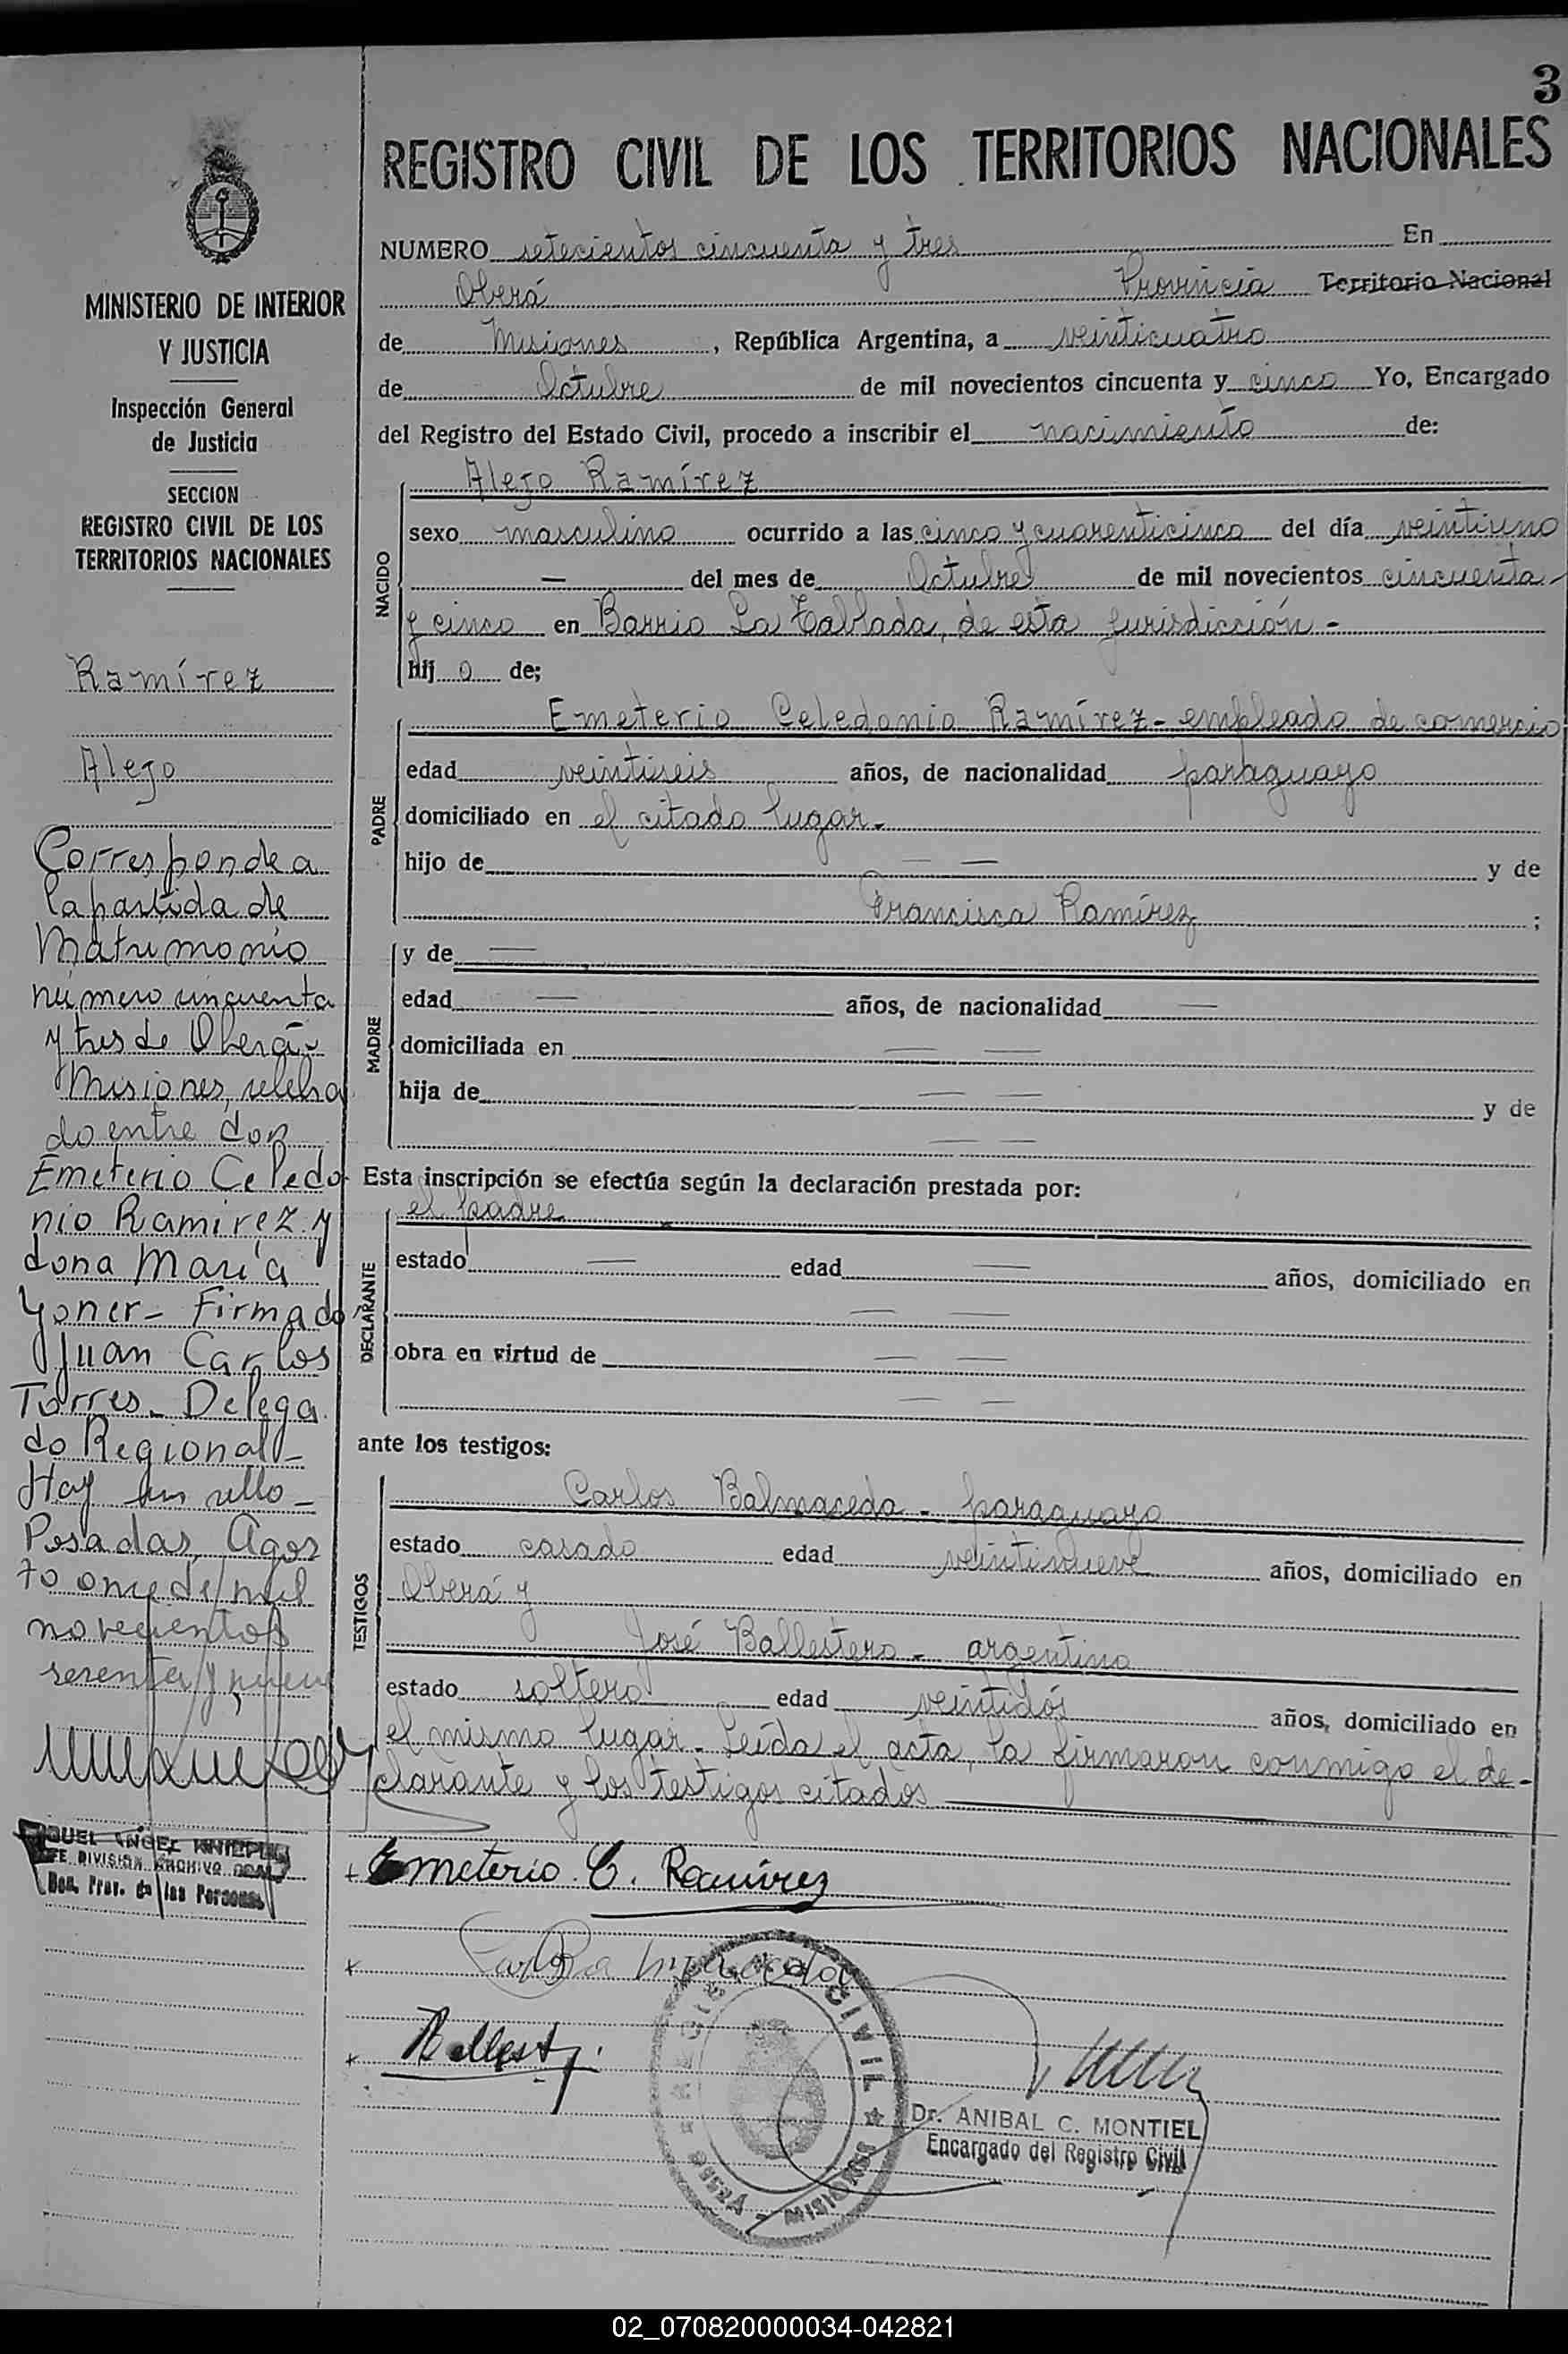 3
REGISTRO CIVIL DE LOS TERRITORIOS NACIONALES
NUMERO setecientos cincuenta y tres En
Oberá Provincia Territorio Nacional
de Misiones, República Argentina, a veinticuatro
de Octubre de mil novecientos cincuenta y cinco Yo, Encargado
del Registro del Estado Civil, procedo a inscribir el nacimiento de:
NACIDO
Alejo Ramírez
sexo masculino ocurrido a las cinco y cuarenticinco del día veintiuno
— del mes de Octubre de mil novecientos cincuenta
y cinco en Barrio La Tablada, de esta jurisdicción -
hij o de;
PADRE
Emeterio Celedonio Ramírez - empleado de comercio
edad veintiseis años, de nacionalidad paraguayo
domiciliado en el citado lugar -
hijo de — — y de
Francisca Ramírez ;
MADRE
y de —
edad — años, de nacionalidad —
domiciliada en — —
hija de — — y de
— —
Esta inscripción se efectúa según la declaración prestada por:
DECLARANTE
el padre
estado — edad — años, domiciliado en
— —
obra en virtud de — —
— —
ante los testigos:
TESTIGOS
Carlos Balmaceda - paraguayo
estado casado edad veintinueve años, domiciliado en
Oberá y
José Ballestero - argentino
estado soltero edad veintidós años, domiciliado en
el mismo lugar - Leída el acta, la firmaron conmigo el de-
clarante y los testigos citados
Emeterio C. Ramírez
REGISTRO CIVIL
MISIONES
Dr. ANIBAL C. MONTIEL
Encargado del Registro Civil
MINISTERIO DE INTERIOR
Y JUSTICIA
Inspección General
de Justicia
SECCION
REGISTRO CIVIL DE LOS
TERRITORIOS NACIONALES
Ramírez
Alejo
Corresponde a
la partida de
Matrimonio
número cincuenta
y tres de Oberá -
Misiones, celebra
do entre don
Emeterio Celedo
nio Ramirez y
dona María
Yoner - Firmado
Juan Carlos
Torres - Delega
do Regional -
Hay un sello -
Posadas, Agos
to once de mil
novecientos
setenta y nueve
DIVISION ARCHIVO GRAL
Prov. de las Personas
02_070820000034-042821